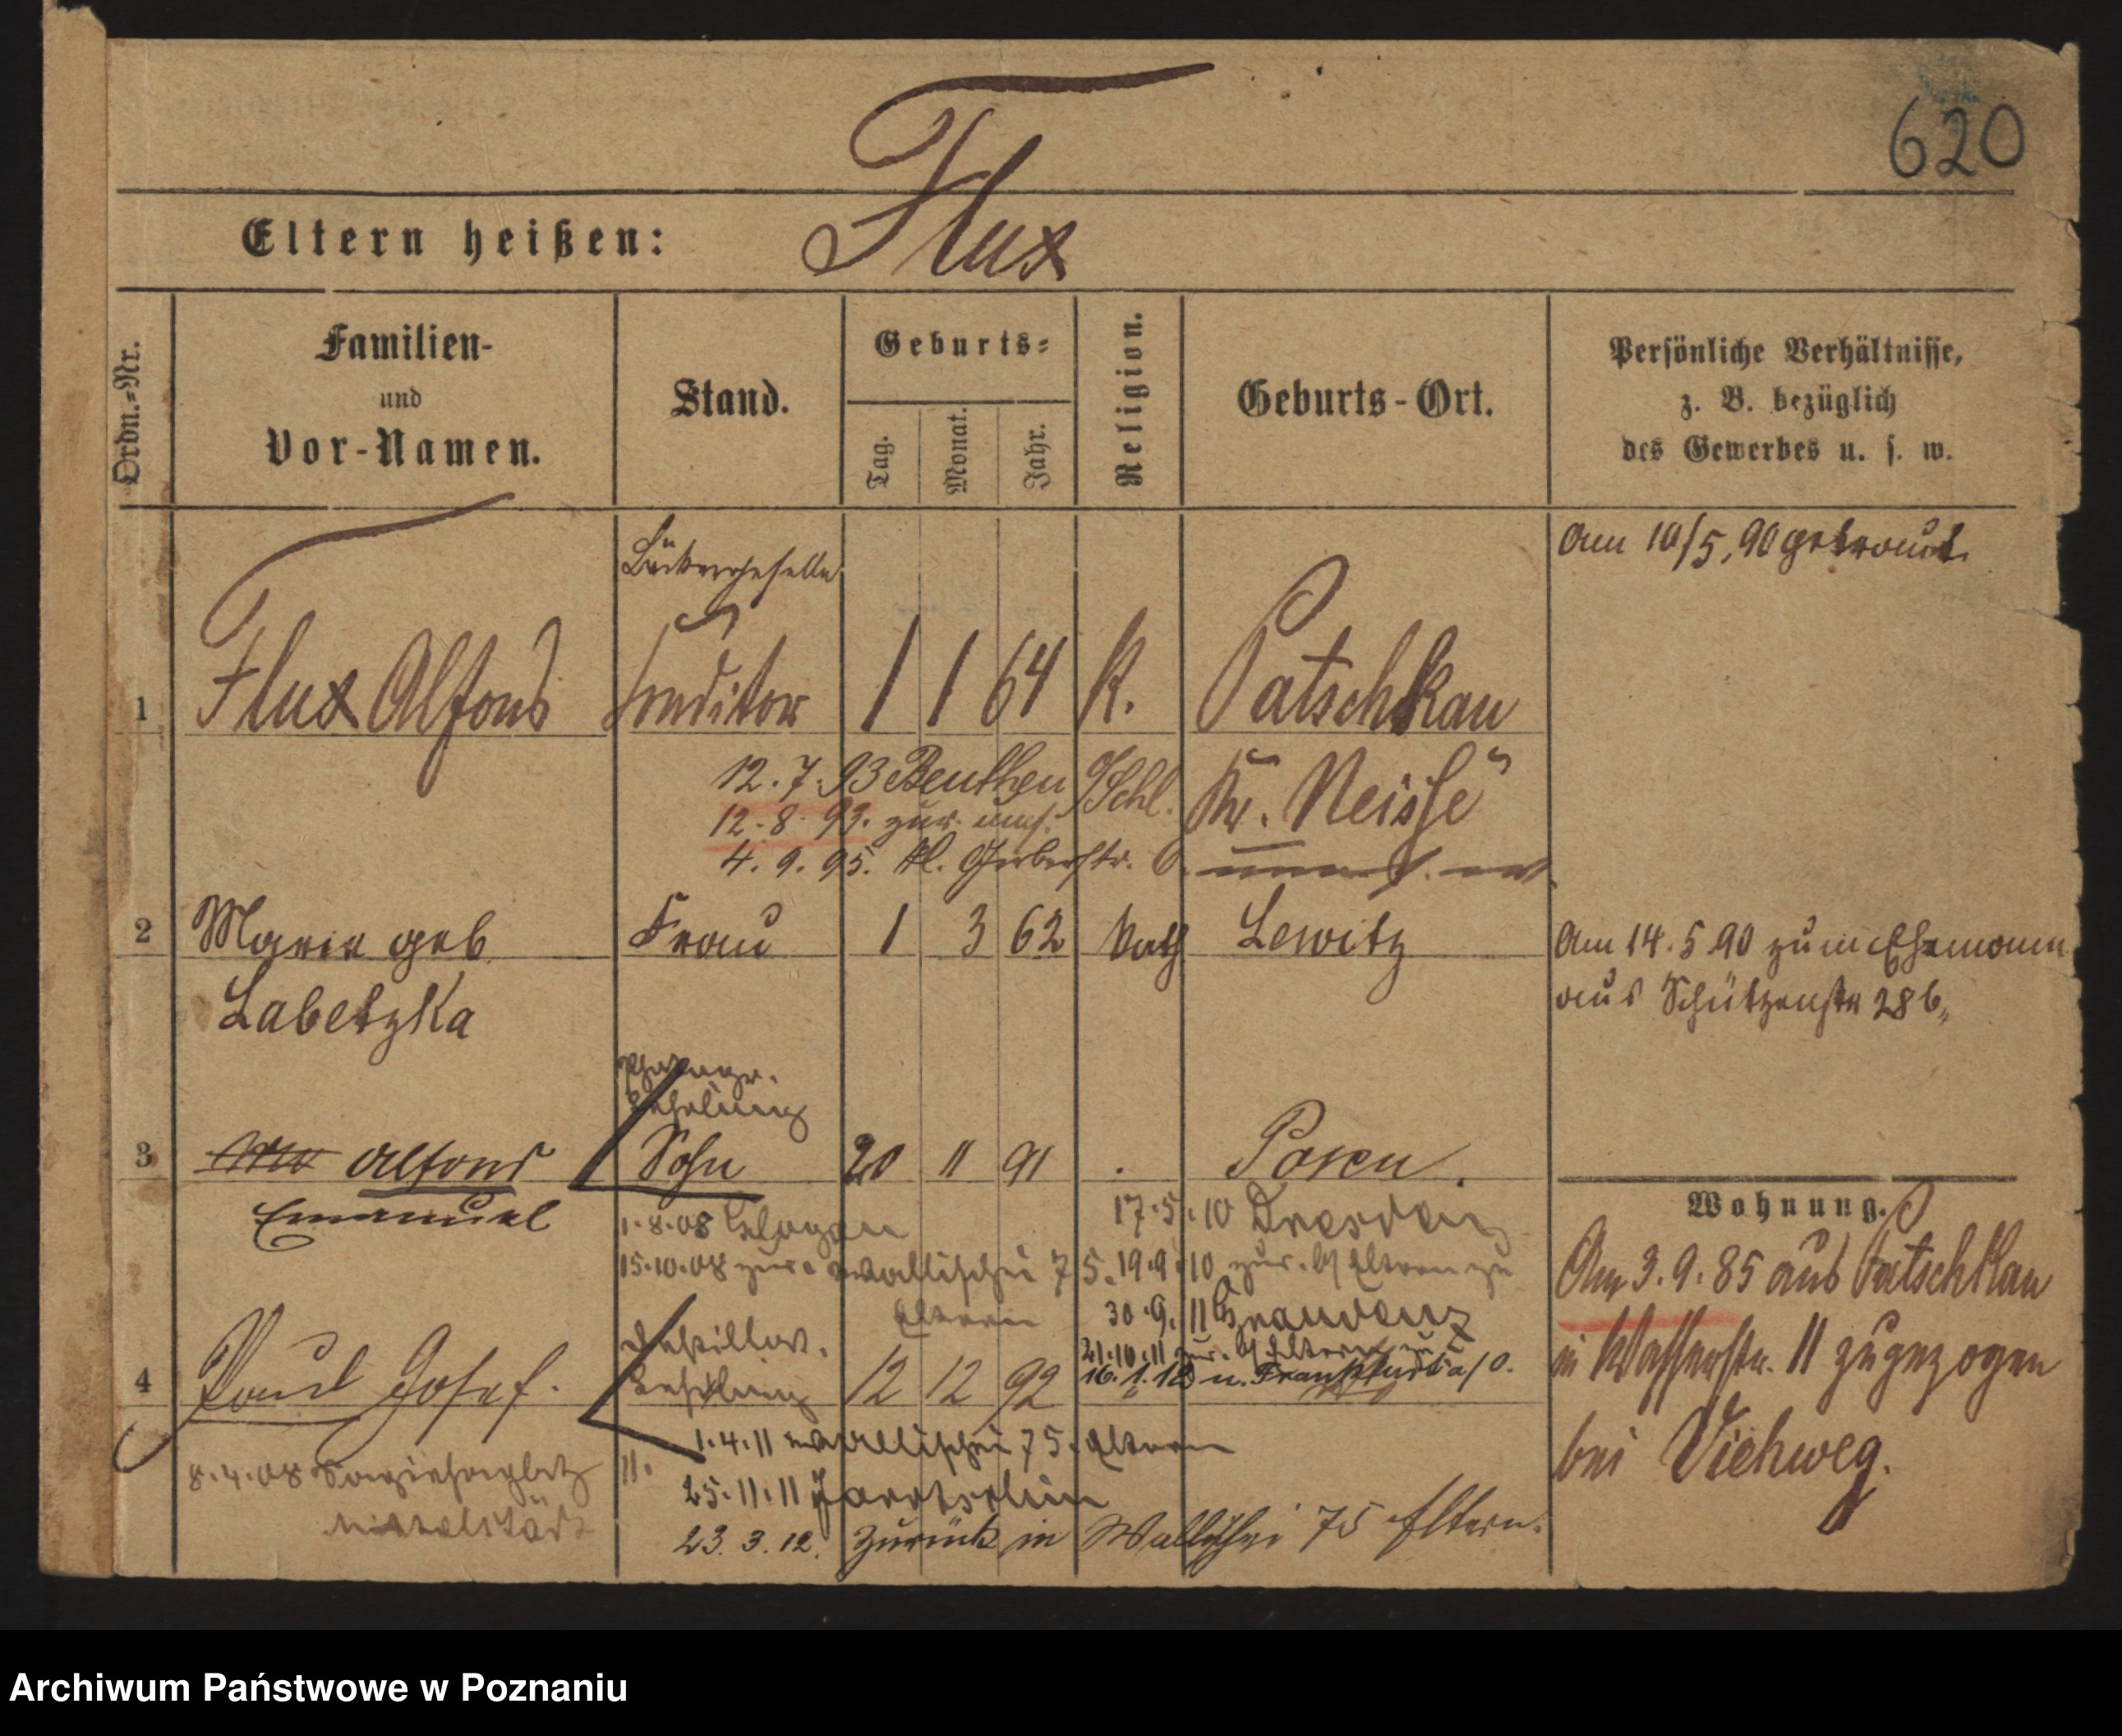 620
Flux
Eltern heißen:
Ordn.=Nr.
Familien-
und
Vor-Namen.
Stand.
Geburts=
Tag.
Monat.
Jahr.
Religion.
Geburts-Ort.
Persönliche Verhältnisse,
z. B. bezüglich
des Gewerbes u. s. w.
Am 10/5. 90 getraut.
1 Flux Alfons Conditor 1 1 64 K. Patschkau
12.7.93 Beuthen O/Schl. Kr. Neisse
12.8.93. zur.
4.9.95. Kl. Gerberstr. 6.
2 Marie geb Frau 1 3 62 Kath Lewitz
Labetzka
Am 14.5.90 zum Ehemann
aus Schützenstr 28b
Lehrling
3 Alfons Sohn 20 11 91 Posen.
Emanuel
1.8.08 Glogau
17.5.10 Dresden
15.10.08 zur. Wallischei 75. 19.9.10 zur. b/ Eltern zu
Eltern
30.9.11 Graudenz
21.10.11 zur. b/ Eltern zu
16.1.12 n. Frankfurt a/O.
4 Paul Josef. Lehrling 12 12 92
1.4.11 Wallischei 75. Eltern
8.4.08
25.11.11 Jarotschin
23.3.12. zurück in Wallischei 75 Eltern.
Wohnung.
Am 3.9.85 aus Patschkau
in Wasserstr. 11 zugezogen
bei Viehweg.
Archiwum Państwowe w Poznaniu